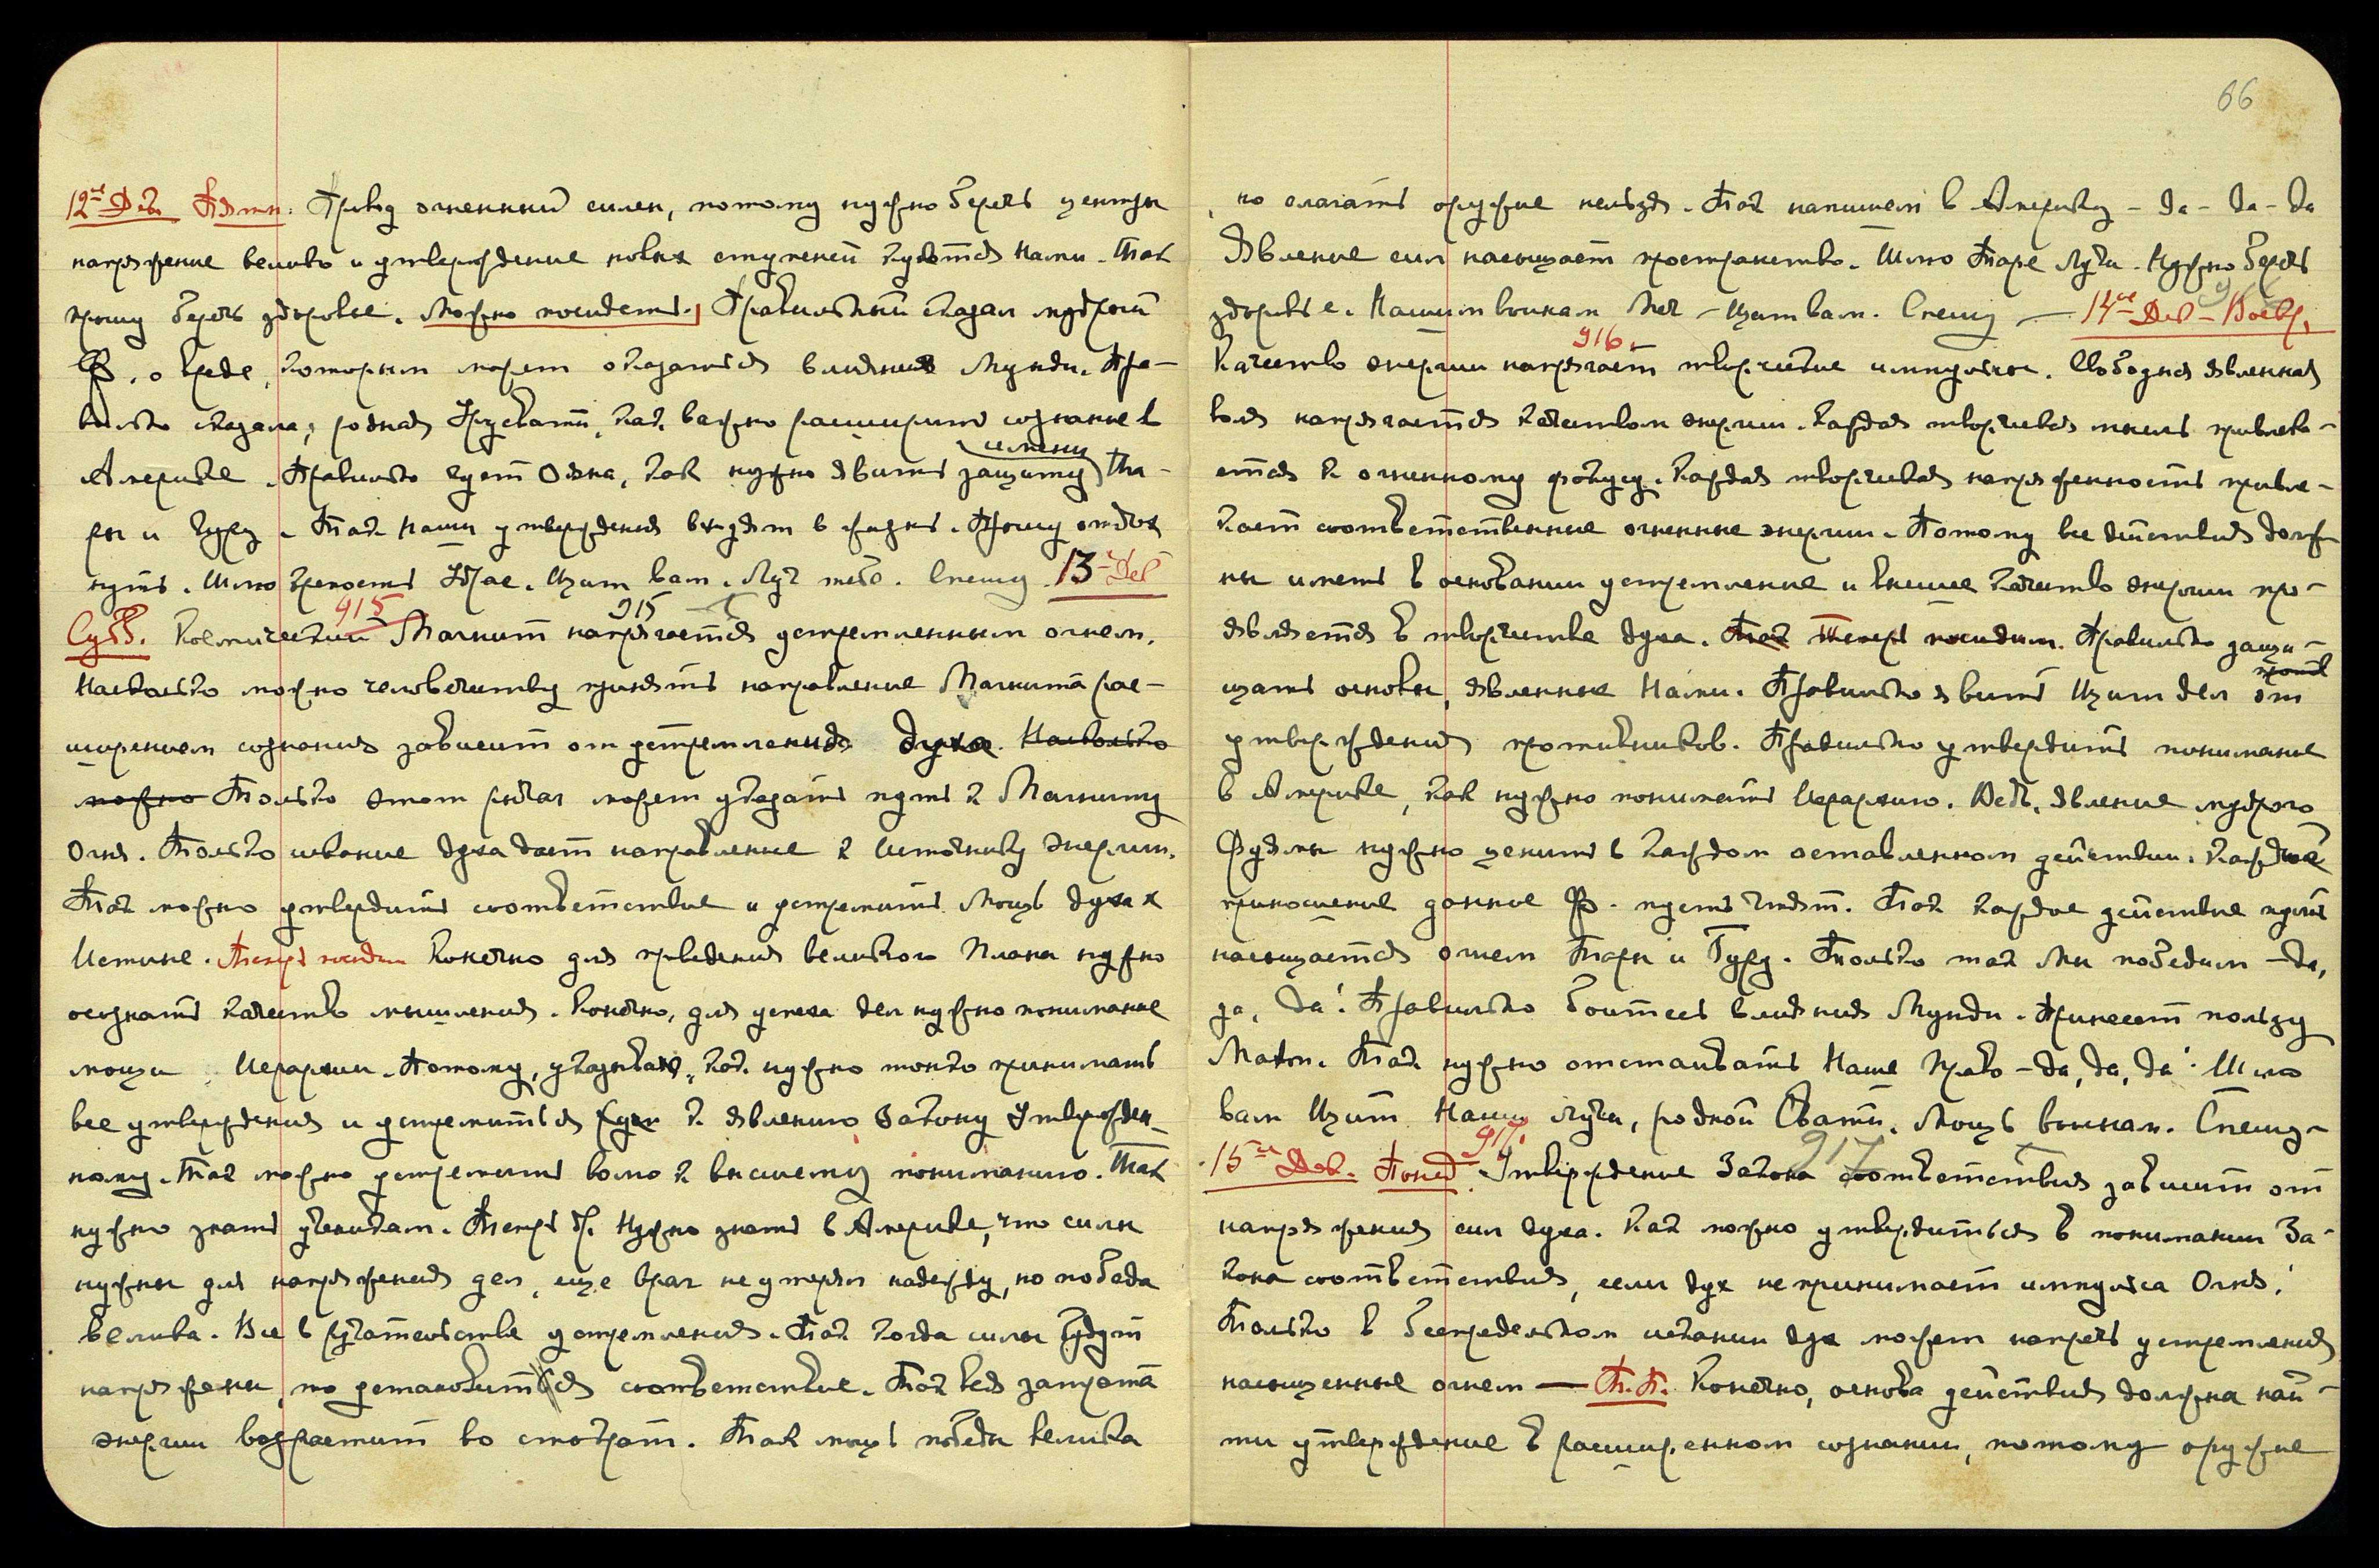 12-е Дек. Пятн. Провод огненный силен, потому нужно беречь центры
напряжение велико и утверждение новых ступеней куется Нами. Так
прошу беречь здоровье. Можно посидеть. Правильный сказал мудрый
Ф. о вреде, которым может оказаться влияние Мунди. Пра-
вильно сказала, родная Урусвати, как важно расширить сознание в
Америке. Правильно чует Ояна, как нужно явить защиту имени Та-
ры и Гуру. Так Наши утверждения входят в жизнь. Прошу отдох
нуть. Шлю крепость Удрае. Щит вам. Луч тебе. Спешу 13-Дек
915 915
Субб. Космический Магнит напрягается устремленным огнем.
Насколько можно человечеству принять направление Магнита рас-
ширением сознания зависит от устремления духа. Насколько
можно Только этот рычаг может указать путь к Магниту
Огня. Только искание духа дает направление к Источнику энергии.
Так можно утвердить соответствие и устремить Мощь духа к
Истине. Теперь посидим Конечно для проведения великого Плана нужно
осознать качество мышления. Конечно, для успеха дел нужно понимание
мощи Иерархии. Потому, указываю, как нужно тонко принимать
все утверждения и устремиться к явлению Закону Утвержден-
ному. Так можно устремить волю к высшему пониманию. Так
нужно знать ученикам. Теперь др. Нужно знать в Америке, что силы
нужны для напряжения дел, еще враг не утерял надежду, но победа
велика. Все в ручательстве устремления. Так когда силы будут
напряжены, то установится соответствие. Так вся затрата
энергии возрастит во стократ. Так мощь победы велика
66
но слагать оружие нельзя. Так напишем в Америку – да – да – да
Явление сил насыщает пространство. Шлю Таре Лучи. Нужно беречь
здоровье. Нашим воинам Меч – Щит вам. Спешу — 14-ое Дек – Воскр.
916.
Качество энергии напрягает творческие импульсы. Свободно явленная
воля напрягается качеством энергии. Каждая творческая мысль привлека-
ется к огненному фокусу. Каждая творческая напряженность привле-
кает соответственные огненные энергии. Потому все действия долж
ны иметь в основании устремление и высшее качество энергии про-
является в творчестве духа. Так Теперь посидим. Правильно защи-
щать основы, явленные Нами. Правильно явить Щит дел от
утверждений противников. Правильно утвердить понимание
в Америке, как нужно понимать Иерархию. Ведь, явление мудрого
Фуямы нужно ценить в каждом оставленном действии. Каждое
приношение данное Ф. пусть чтят. Так каждое действие пусть
насыщается огнем Тары и Гуру. Только так Мы победим – да,
да, да! Правильно боитесь влияния Мунди. Принесет пользу
Maton. Так нужно отстаивать Наше Право – да, да, да! Шлю
вам Щит Наш Лучи, родной Свати. Мощь воинам. Спешу –
917. 917
15-ое Дек. Понед. Утверждение Закона соответствия зависит от
напряжения сил духа. Как можно утвердиться в понимании За-
кона соответствия, если дух не принимает импульса Огня!
Только в беспредельном искании дух может напречь устремления
насыщенные огнем — Т. П. Конечно, основа действия должна най-
ти утверждение в расширенном сознании, потому оружие